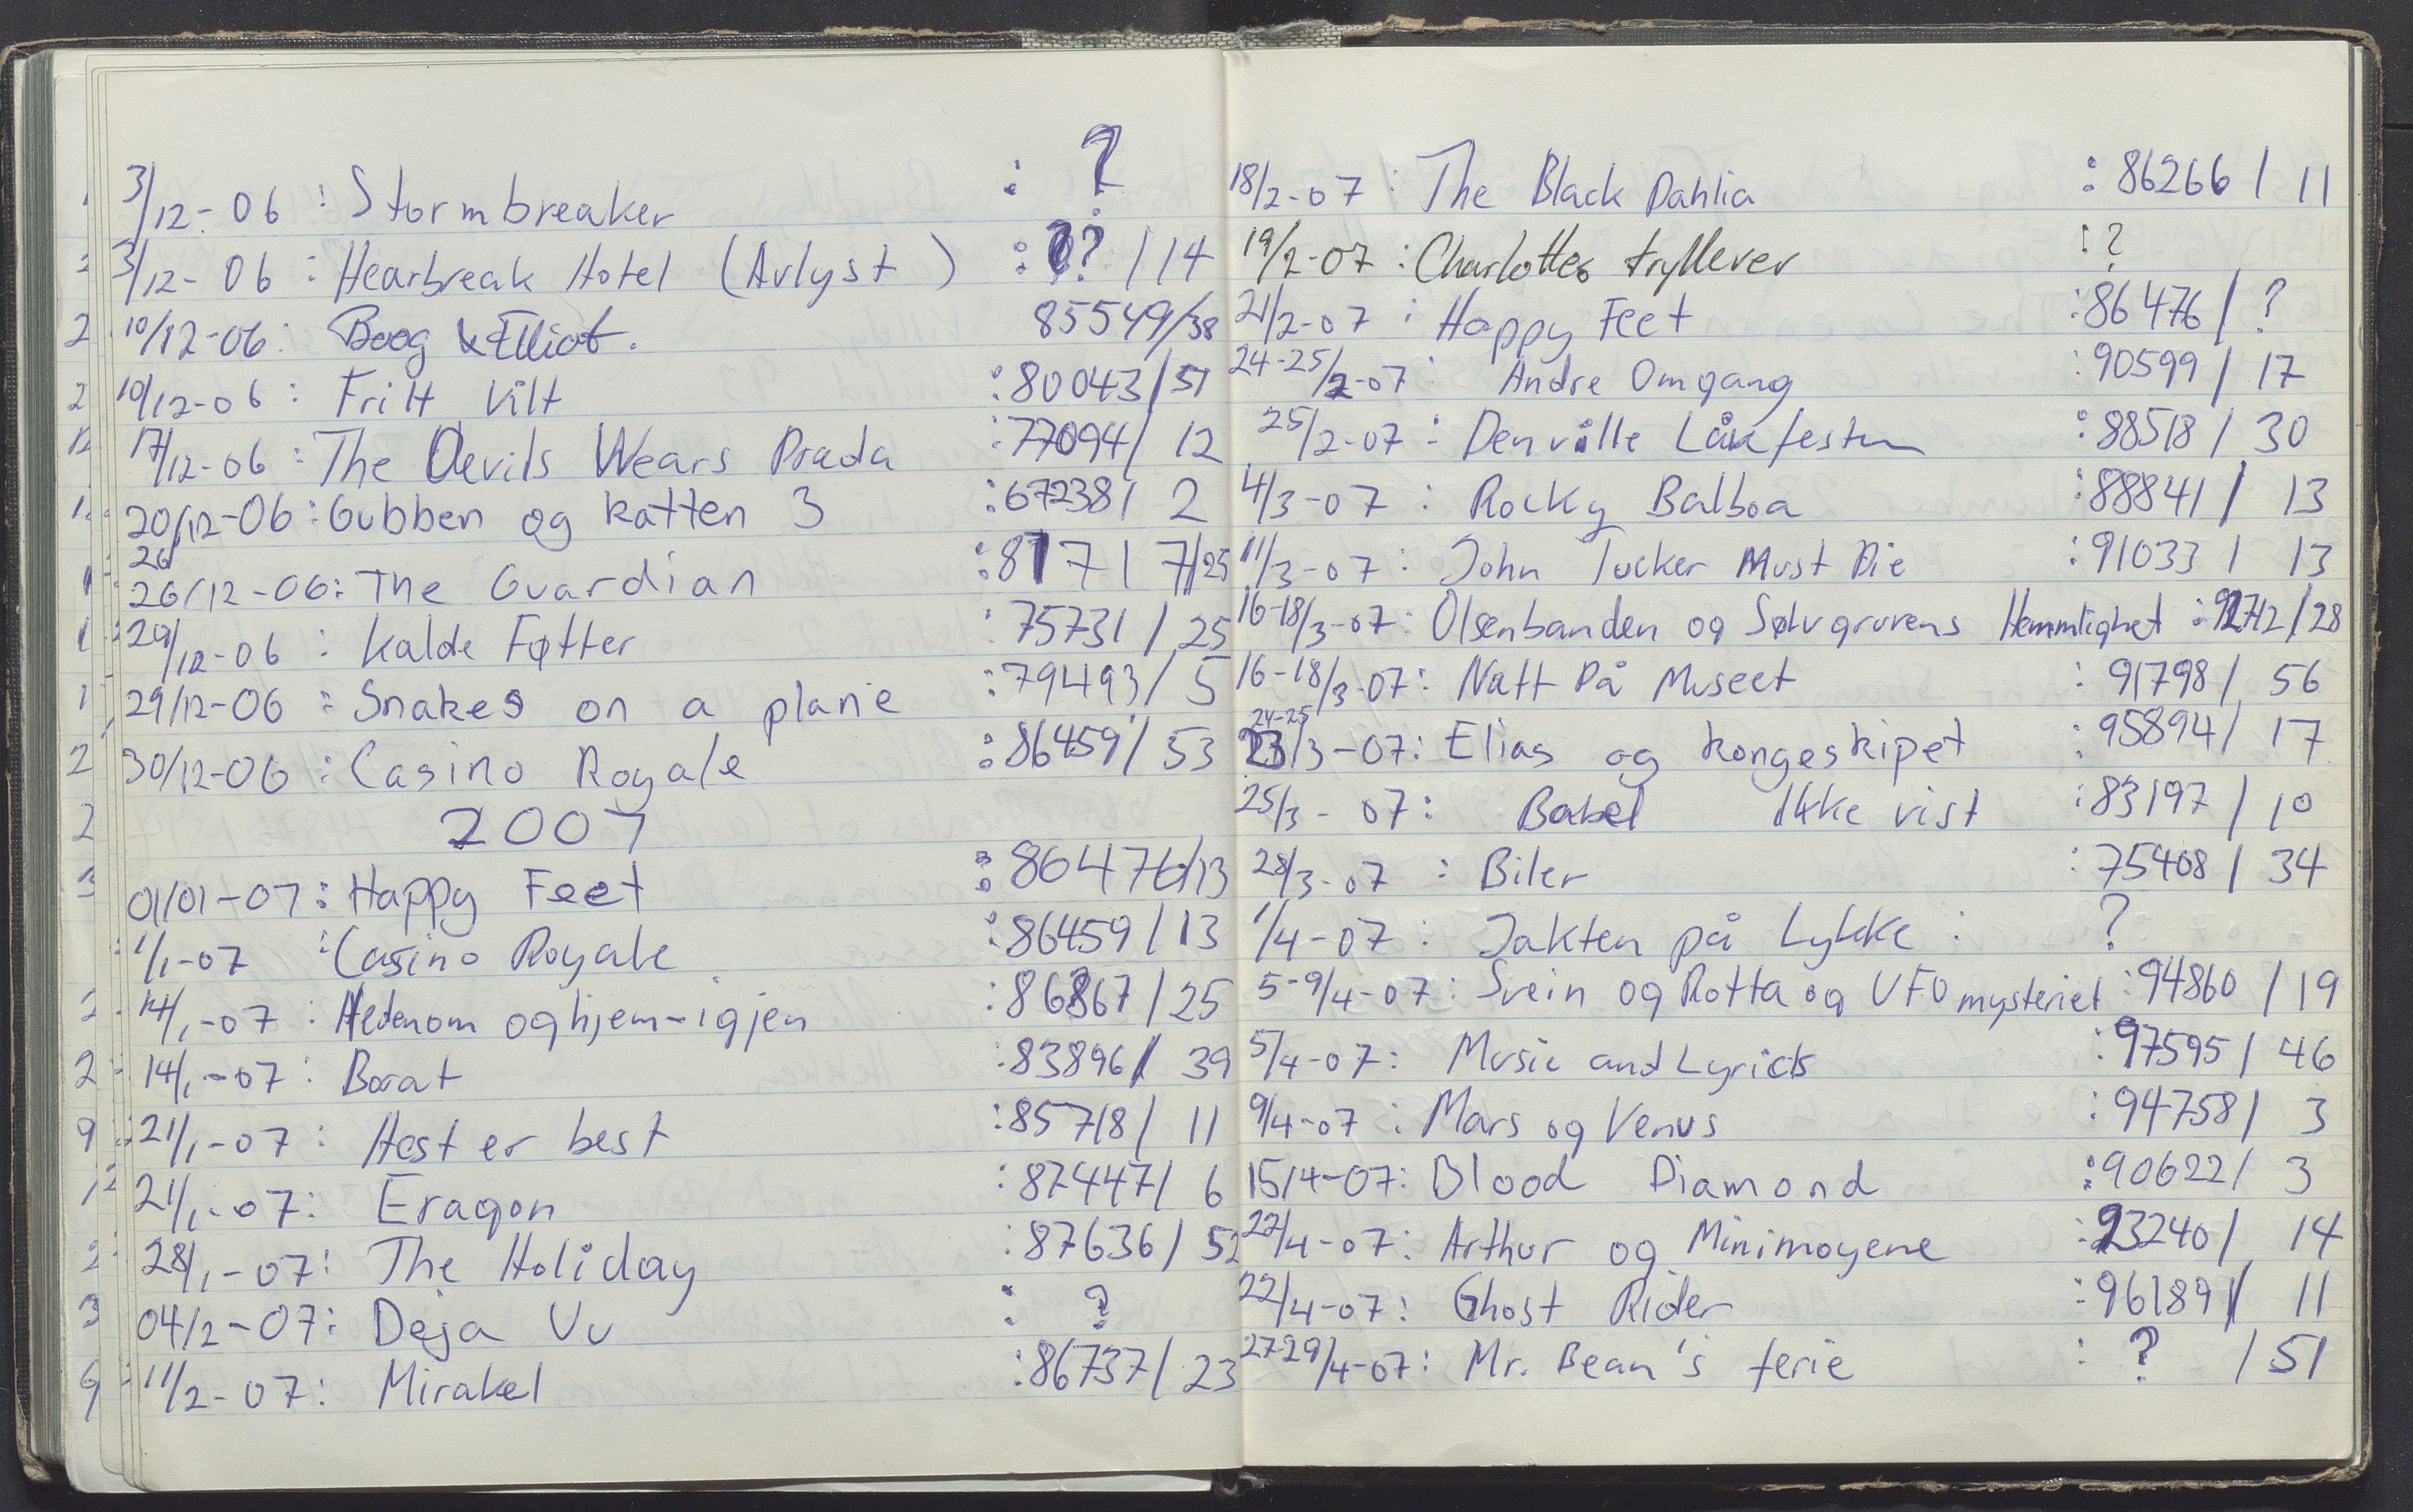 3/12-06 : Stormbreaker : ?
3/12-06 : Hearbreak Hotel (Avlyst) : ? /14
10/12-06: Boog & Elliot. 85549/38
10/12-06 : Fritt Vilt :80043/51
17/12-06 : The Devils Wears Prada :77094/ 12
20/12-06 : Gubben og katten 3 :67238/ 2
26
26/12-06: The Guardian :8717/25
29/12-06 : kalde Føtter : 75731 / 25
29/12-06 : Snakes on a plane :79493/ 5
30/12-06 : Casino Royale :86459/ 53
2007
01/01-07 : Happy Feet : 86476/13
1/1-07 : Casino Royale :86459 / 13
14/1-07 : og hjem-igjen :86867 / 25
14/1-07 : Borat :83896/ 39
21/1-07 : Hest er best :85718/ 11
21/1-07: Eragon :87447/ 6
28/1-07: The Holiday :87636/ 52
04/2-07: Deja Vu : ?
11/2-07: Mirakel :86737/ 23
18/2-07 : The Black Dahlia : 86266 / 11
19/2-07 : Charlottes tryllever : ?
21/2-07 : Happy Feet :86476 / ?
24-25/2-07 : Andre Omgang :90599 / 17
25/2-07 : Den ville Låvefesten :88518 / 30
4/3-07 : Rocky Balboa :88841 / 13
11/3-07 : John Tucker Must Die :91033 / 13
16-18/3-07: Olsenbanden og Sølvgruvens Hemmlighet : /28
16-18/3-07: Natt På Museet : 91798/ 56
24-25
23/3-07: Elias og kongeskipet : 95894/ 17
25/3-07: Babel Ikke vist :83197 / 10
28/3-07 : Biler :75408 / 34
1/4-07 : Jakten på Lykke : ?
5-9/4-07: Svein og Rotta og UFO mysteriet :94860 / 19
5/4-07: Music and Lyrics :97595/ 46
9/4-07 : Mars og Venus :94758/ 3
15/4-07: Blood Diamond :90622/ 3
22/4-07: Arthur og Minimoyene :93240/ 14
22/4-07: Ghost Rider :96189/ 11
27-29/4-07: Mr. Bean's ferie : ? /51